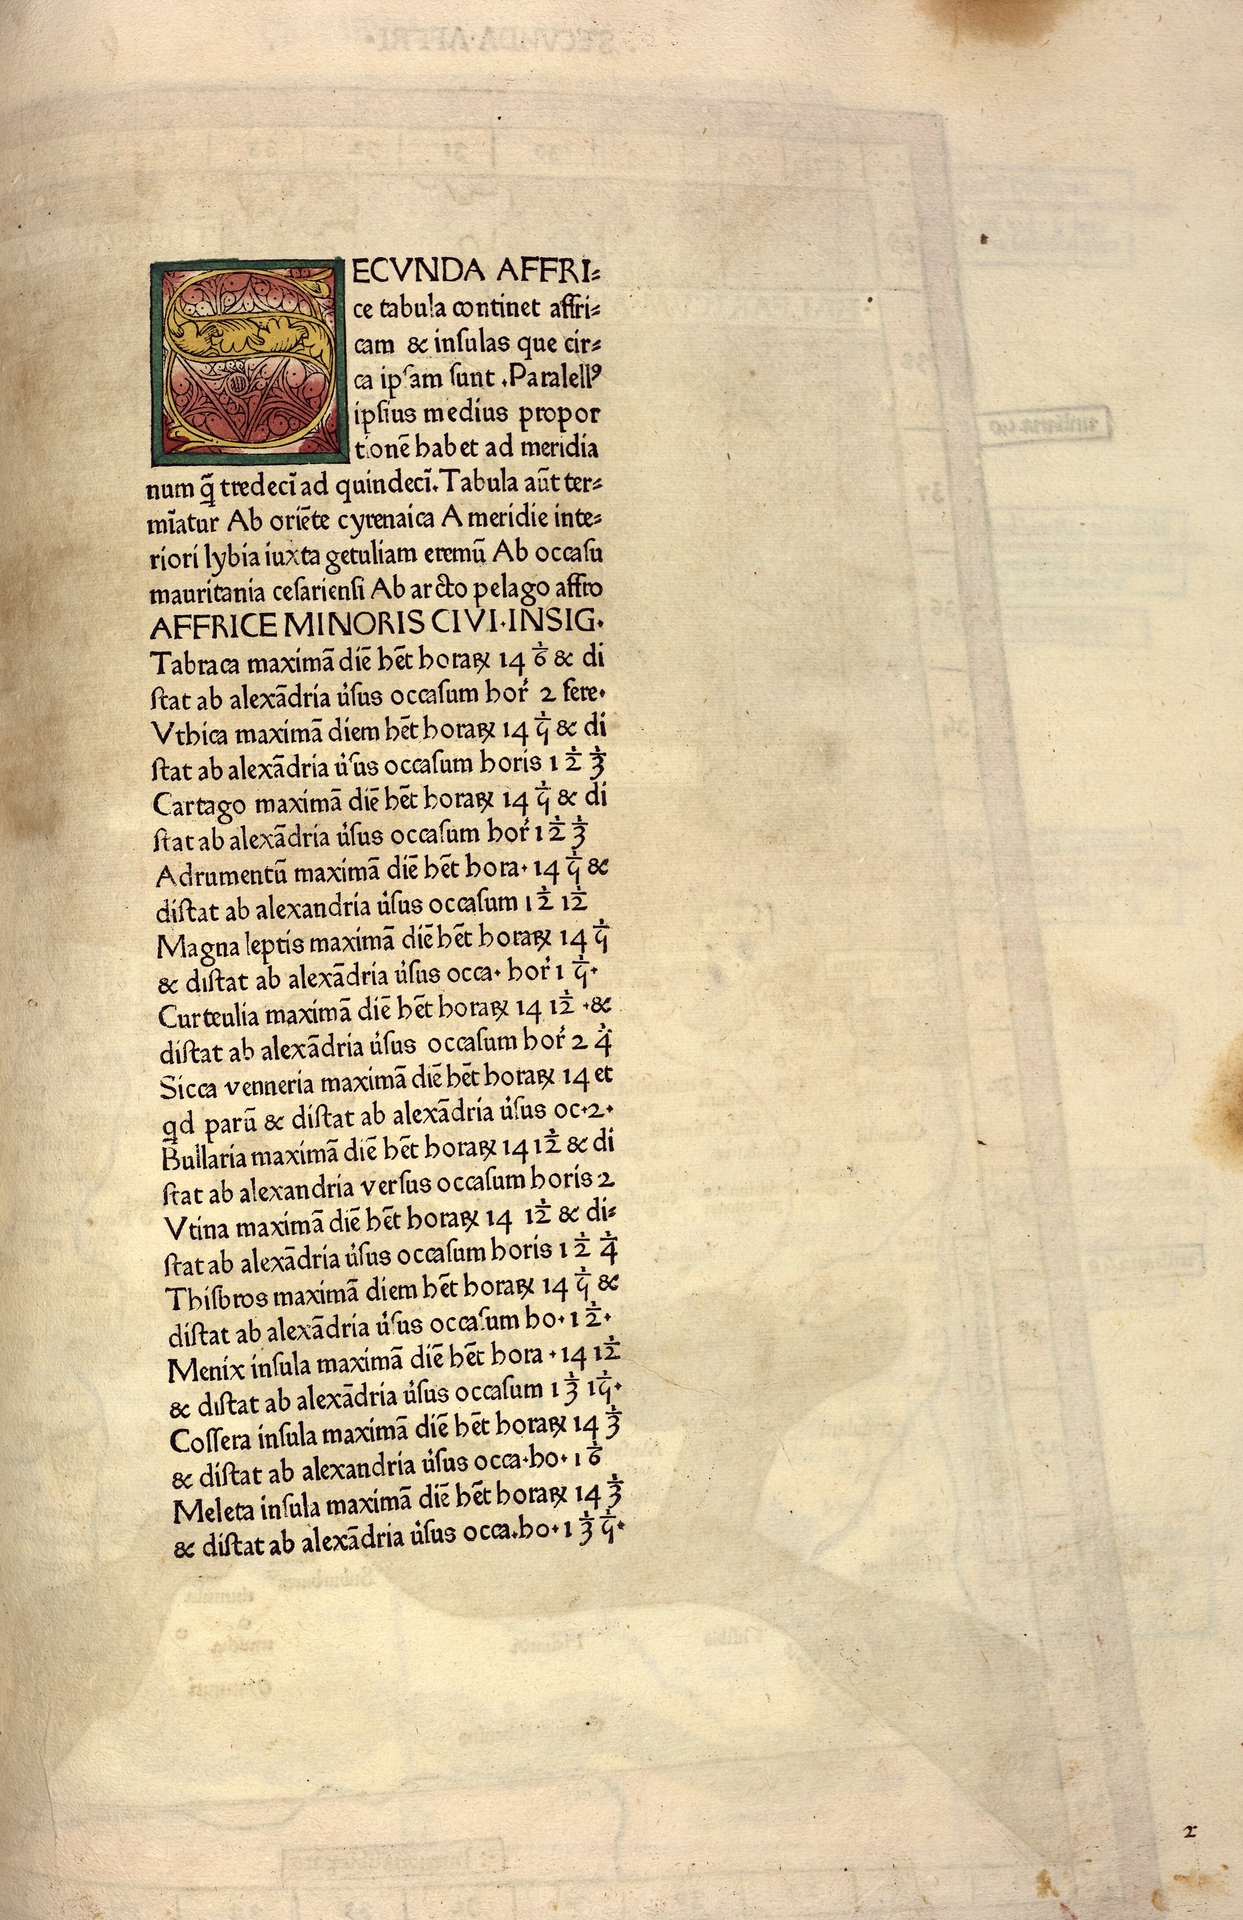 SECVNDA AFFRI⸗
ce tabula continet affri⸗
cam & insulas que cir⸗
ca ipsam sunt .Paralellꝰ
ipsius medius propor
tionē habet ad meridia
num q̄ tredecī ad quindecī.Tabula aūt ter⸗
mīatur Ab oriēte cyrenaica A meridie inte⸗
riori lybia iuxta getuliam eremū Ab occasu
mauritania cesariensi Ab arcto pelago affro
AFFRICE MINORIS CIVI.INSIG.
Tabraca maximā diē hēt horaꝝ 14 ⅙ & di
stat ab alexādria u̓sus occasum hor̓ 2 fere.
Vthica maximā diem hēt horaꝝ 14 ⅕ & di
stat ab alexādria u̓sus occasum horis 1 ½ ⅓
Cartago maximā diē hēt horaꝝ 14 ⅕ & di
stat ab alexādria u̓sus occasum hor̓ 1 ½ ⅓
Adrumentū maximā diē hēt hora. 14 ⅕ &
distat ab alexandria u̓sus occasum 1 ½ 1/12
Magna leptis maximā diē hēt horaꝝ 14 ⅕
& distat ab alexādria u̓sus occa. hor̓ 1 ⅕.
Curteulia maximā diē hēt horaꝝ 14 1/12 .&
distat ab alexādria u̓sus occasum hor̓ 2 ¼
Sicca venneria maximā diē hēt horaꝝ 14 et
qd parū & distat ab alexādria u̓sus oc.2.
Bullaria maximā diē hēt horaꝝ 14 1/12 & di
stat ab alexandria versus occasum horis 2
Vtina maximā diē hēt horaꝝ 14 1/12 & di⸗
stat ab alexādria u̓sus occasum horis 1 ½ ¼
Thisbros maximā diem hēt horaꝝ 14 ⅕ &
distat ab alexādria u̓sus occasum ho. 1 ½.
Menix insula maximā diē hēt hora . 14 1/12
& distat ab alexādria u̓sus occasum 1 ⅓ 1/15.
Cossera insula maximā diē hēt horaꝝ 14 ⅓
& distat ab alexandria u̓sus occa.ho. 1 ⅙
Meleta insula maximā diē hēt horaꝝ 14 ⅓
& distat ab alexādria u̓sus occa.ho. 1 ⅓ ⅕.
2